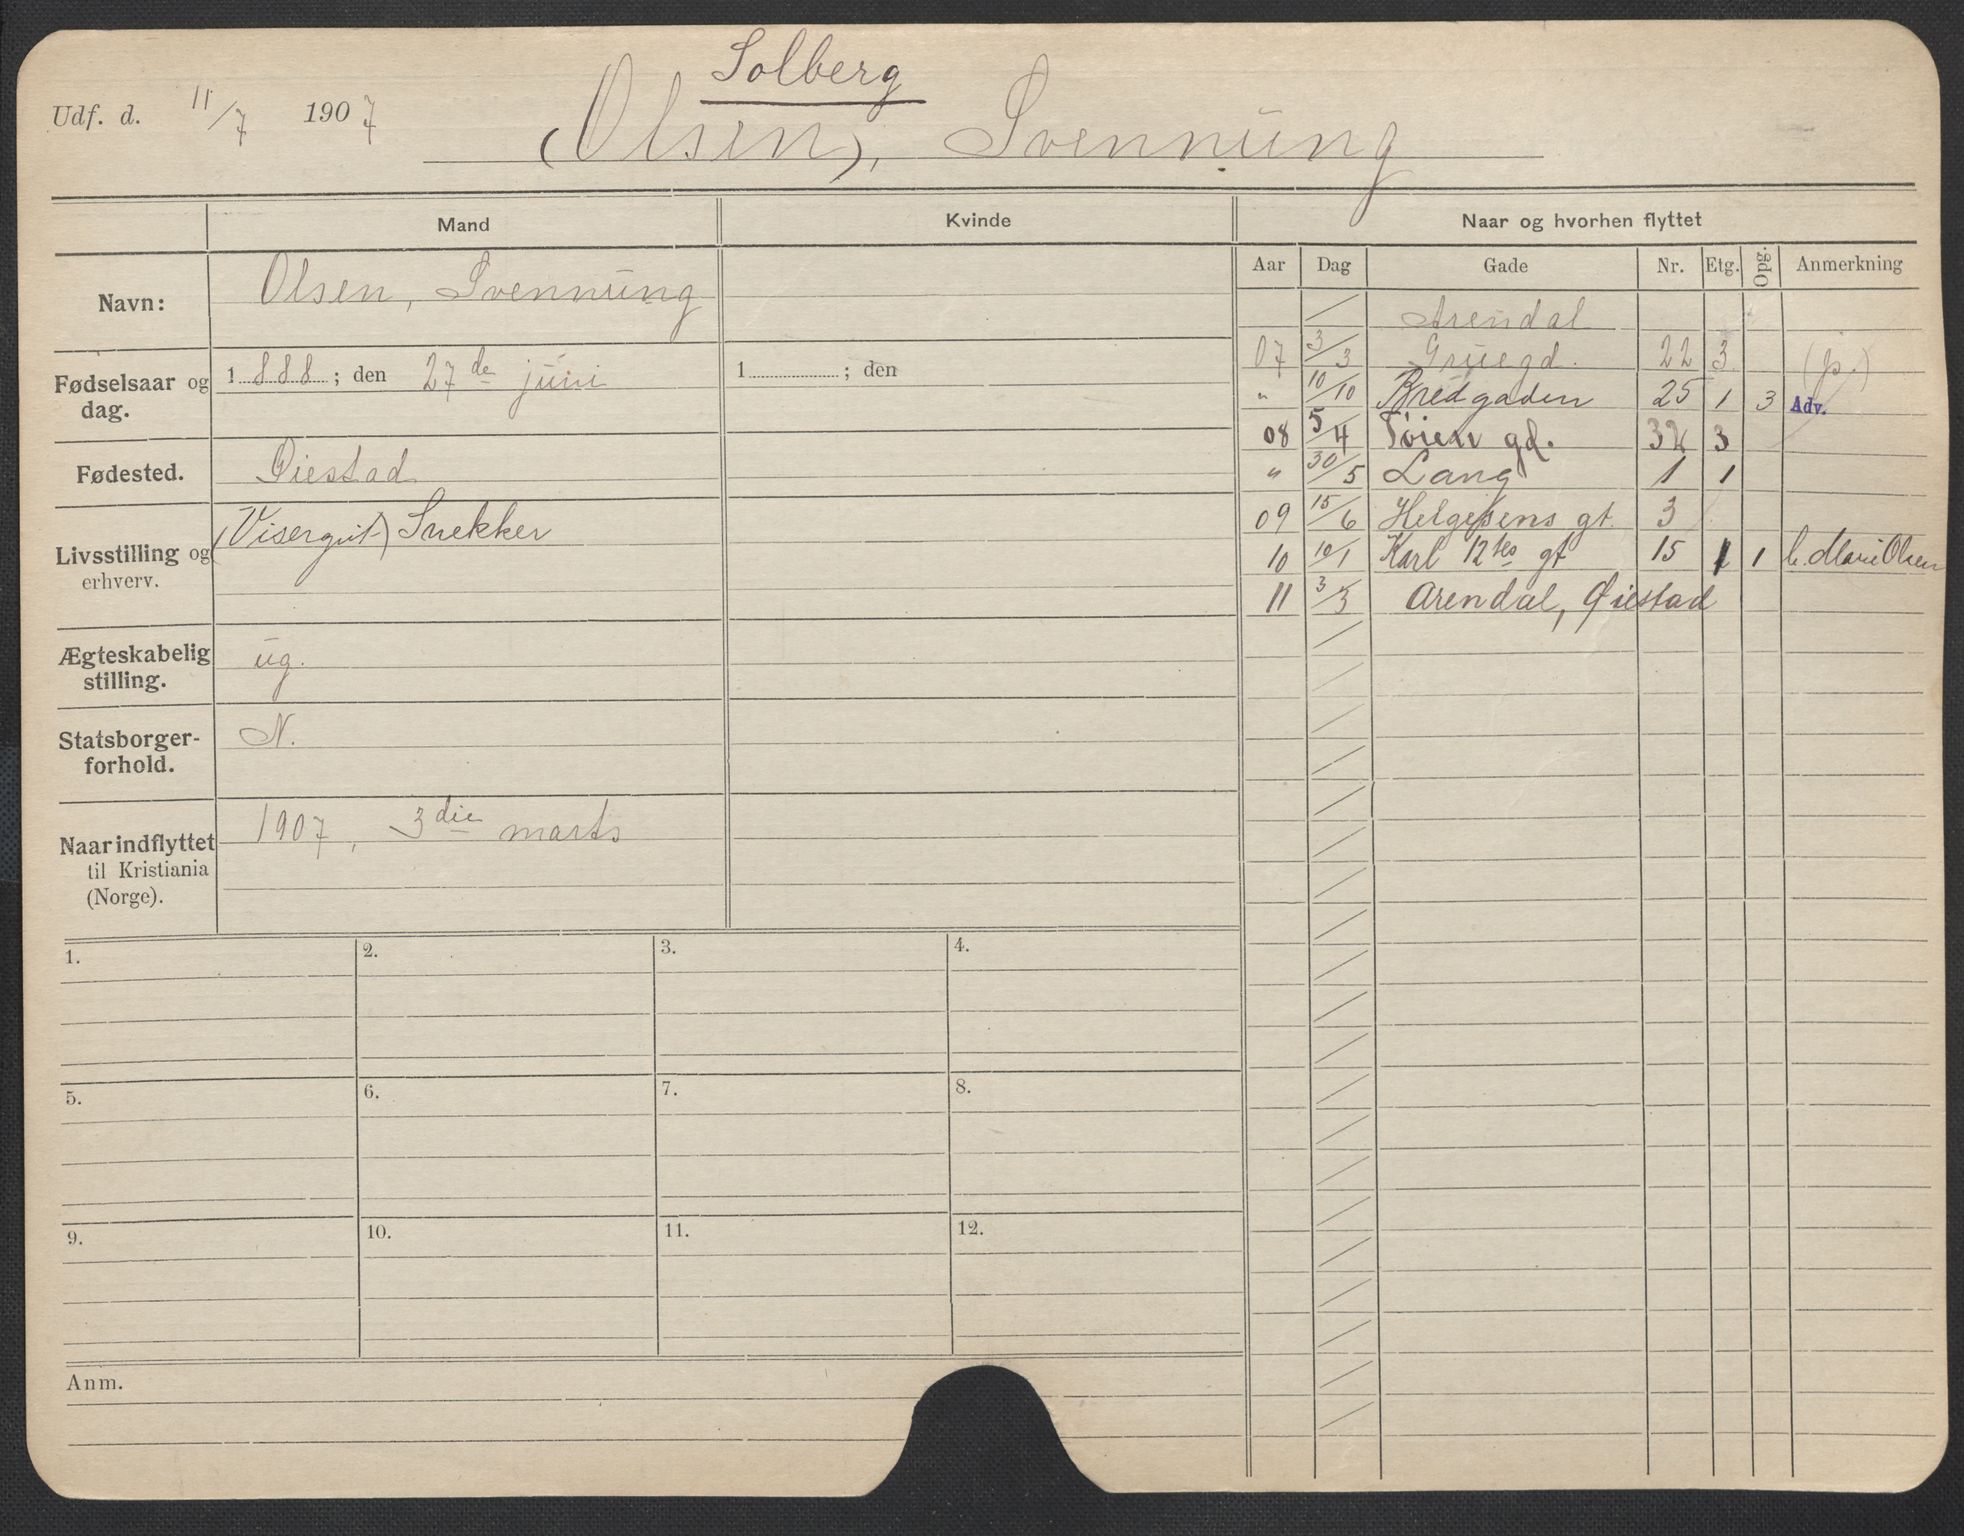 Solberg
Udf. d. 11/7 1907
(Olsen), Svennung
Mand Kvinde Naar og hvorhen flyttet
Aar Dag Gade Nr. Etg. Opg. Anmerkning
Navn: Olsen, Svennung
Fødselsaar og dag. 1888; den 27de juni 1 ; den
Fødested. Øiestad
Livsstilling og erhverv. (Visergut) Snekker
Ægteskabelig stilling. ug.
Statsborger-
forhold. N.
Naar indflyttet
til Kristiania
(Norge). 1907, 3die marts
/ Arendal
07 3/3 Gruegd. 22 3 (js.)
" 10/10 Bredgaden 25 1 3 Adv.
08 5/4 Tøien gd. 3 3
" 30/5 Lang 1 1
09 15/6 Helgesens gt. 3
10 10/1 Karl 12tes gt 15 1 1 b. Marie Olsen
11 3/3 Arendal, Øiestad
1. 2. 3. 4.
5. 6. 7. 8.
9. 10. 11. 12.
Anm.